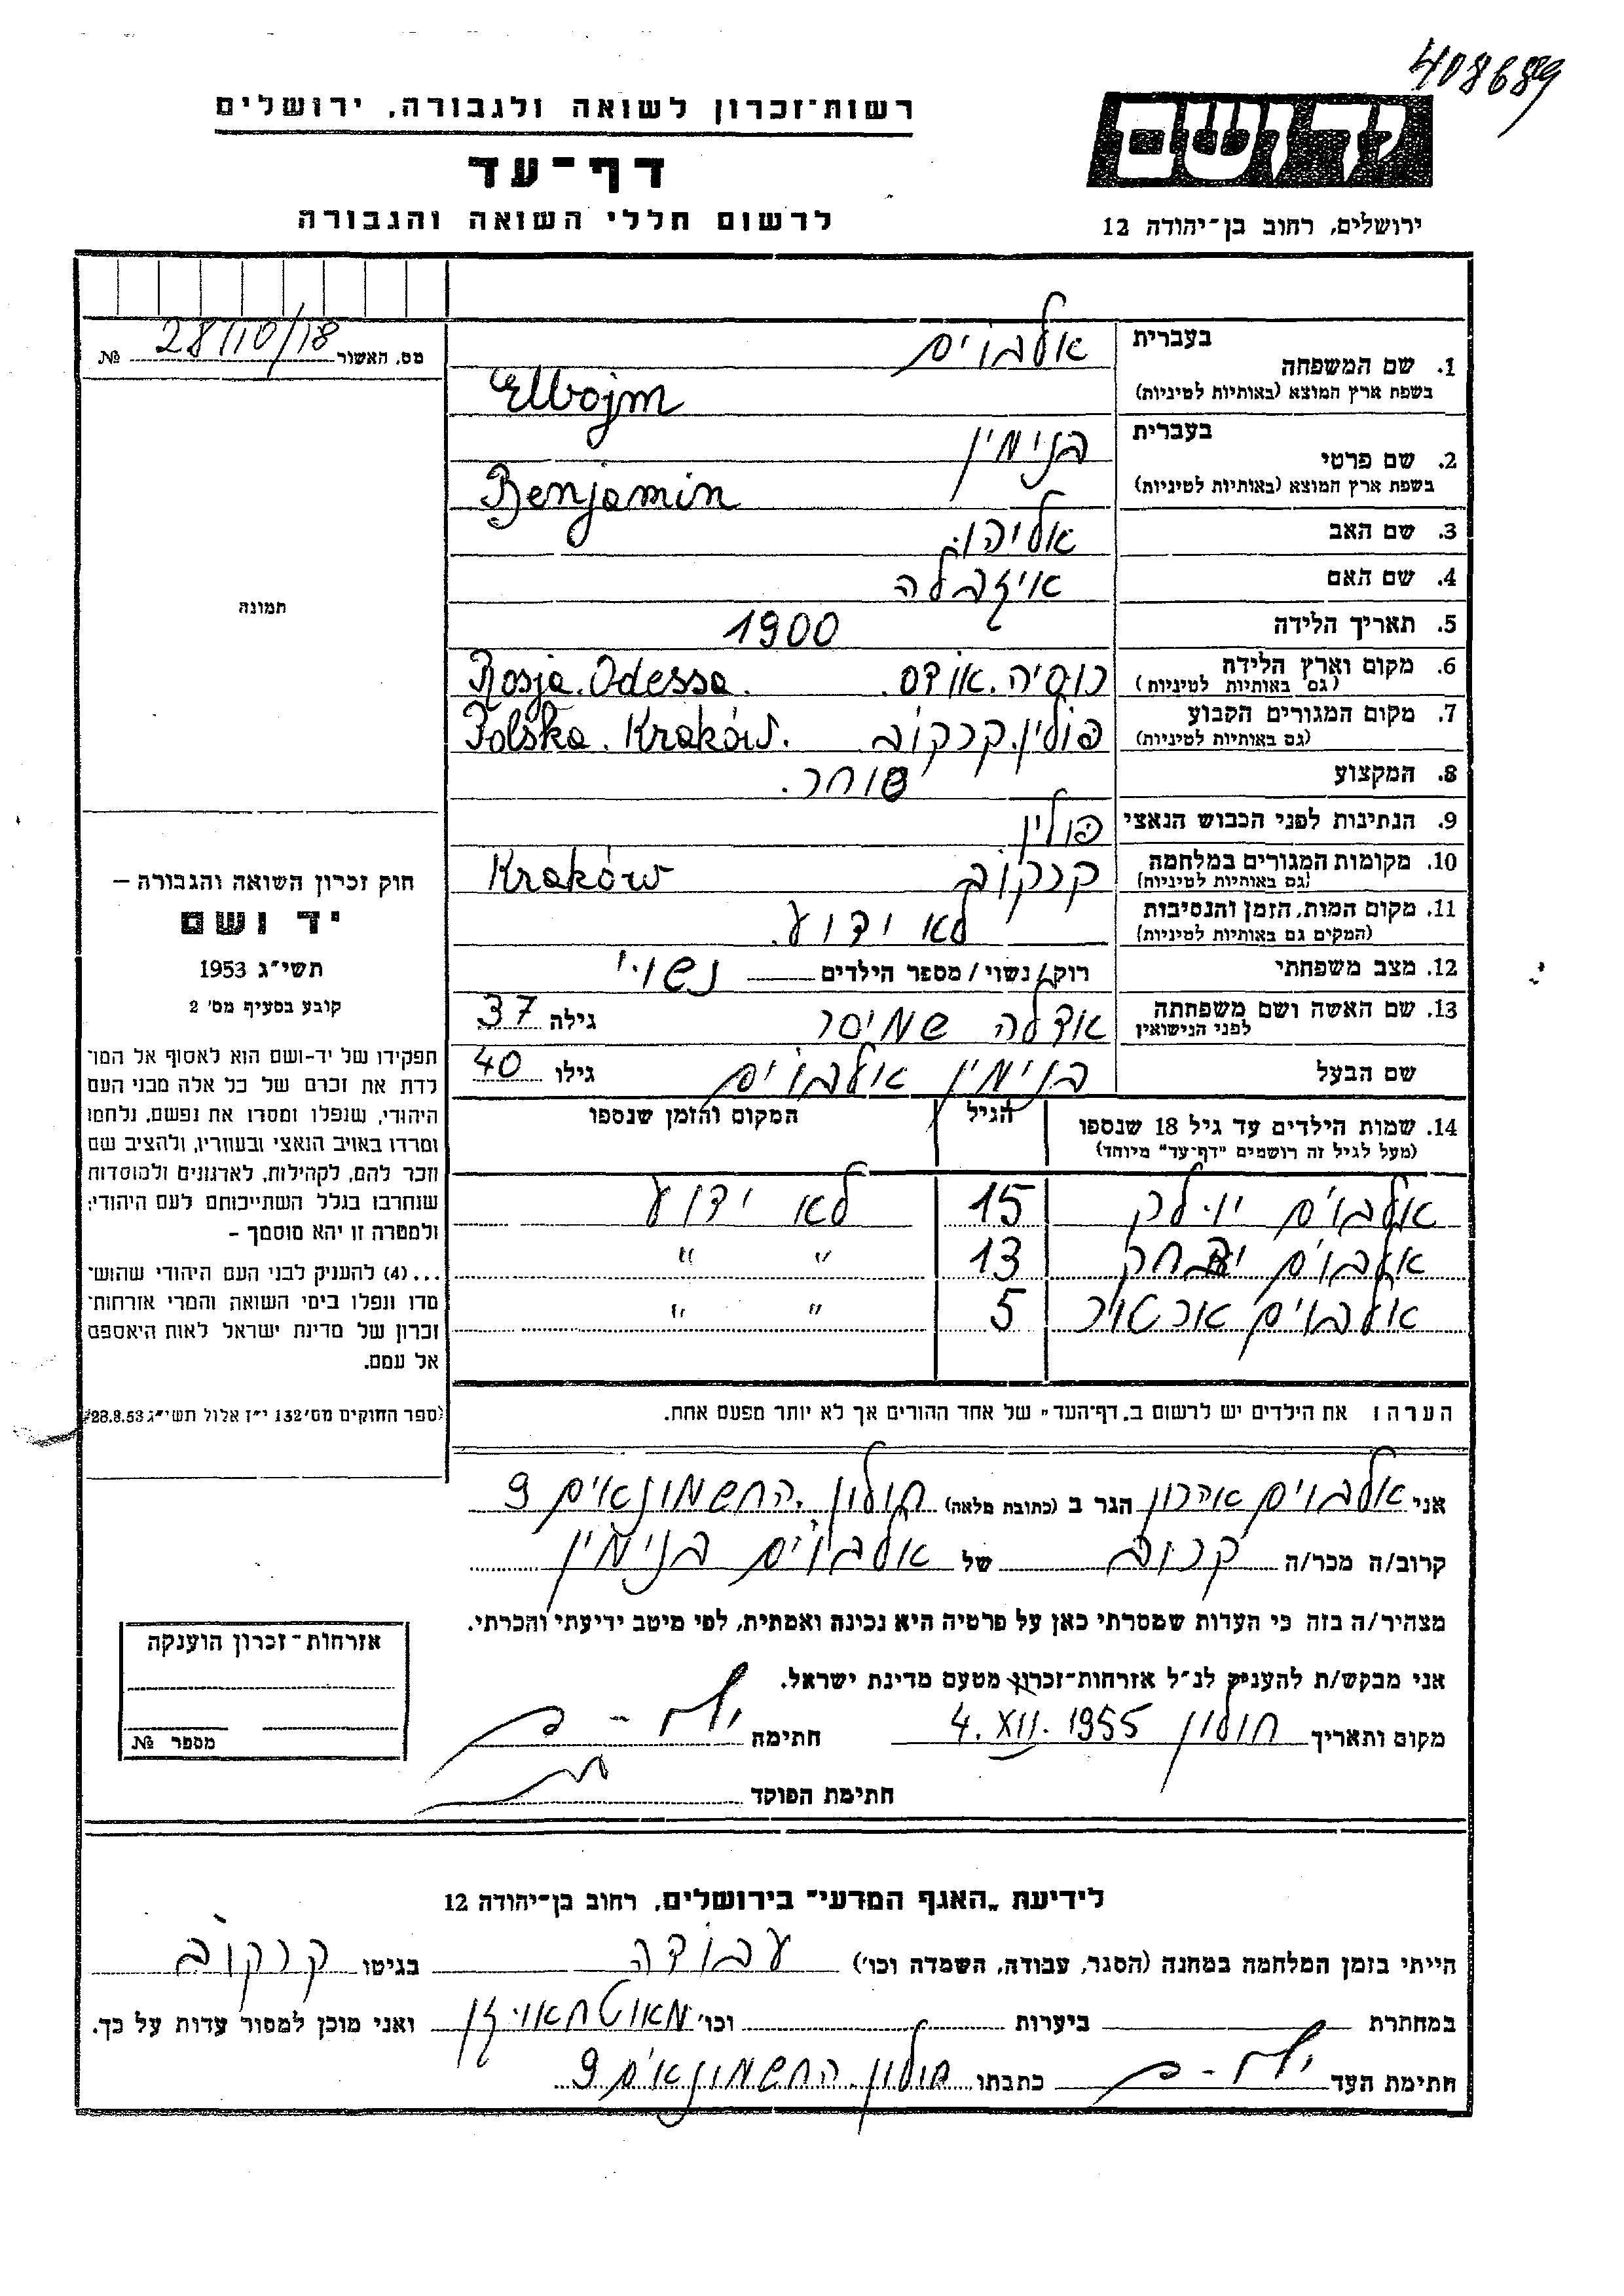 408689
יד ושם
רשות-זכרון לשואה ולגבורה, ירושלים
דף-עד
לרשום חללי השואה והגבורה
ירושלים, רחוב בן-יהודה 12
מס. האשור 28/10/18 №
תמונה
חוק זכרון השואה והגבורה –
יד ושם
תשי"ג 1953
קובע בסעיף מס' 2
תפקידו של יד-ושם הוא לאסוף אל המו־
לדת את זכרם של כל אלה מבני העם
היהודי, שנפלו ומסרו את נפשם, נלחמו
ומרדו באויב הנאצי ובעוזריו, ולהציב שם
וזכר להם, לקהילות, לארגונים ולמוסדות
שנחרבו בגלל השתייכותם לעם היהודי;
ולמטרה זו יהא מוסמך –
... (4) להעניק לבני העם היהודי שהוש־
מדו ונפלו בימי השואה והמרי אזרחות־
זכרון של מדינת ישראל לאות היאספם
אל עמם.
(ספר החוקים מס' 132 י"ז אלול תשי"ג 28.8.53)
1. שם המשפחה
בעברית אלבוים
בשפת ארץ המוצא (באותיות לטיניות) Elbojm
2. שם פרטי
בעברית בנימין
בשפת ארץ המוצא (באותיות לטיניות) Benjamin
3. שם האב אליהו.
4. שם האם איזבלה
5. תאריך הלידה 1900
6. מקום וארץ הלידה (גם באותיות לטיניות) רוסיה. אודס. Rosja. Odessa.
7. מקום המגורים הקבוע (גם באותיות לטיניות) פולין. קרקוב. Polska. Kraków.
8. המקצוע סוחר.
9. הנתינות לפני הכבוש הנאצי פולין.
10. מקומות המגורים במלחמה (גם באותיות לטיניות) קרקוב Kraków
11. מקום המות, הזמן והנסיבות (המקום גם באותיות לטיניות) לא ידוע.
12. מצב משפחתי רוק/נשוי/מספר הילדים נשוי
13. שם האשה ושם משפחתה לפני הנישואין אדלה שמיסר גילה 37
שם הבעל בנימין אלבוים גילו 40
14. שמות הילדים עד גיל 18 שנספו הגיל המקום והזמן שנספו
(מעל לגיל זה רושמים "דף-עד" מיוחד)
אלבוים יולק 15 לא ידוע
אלבוים יצחק 13 " "
אלבוים ארטור 5 " "
הערה: את הילדים יש לרשום ב„דף-העד" של אחד ההורים אך לא יותר מפעם אחת.
אני אלבוים אהרון הגר ב (כתובת מלאה) חולון. החשמונאים 9
קרוב/ה מכר/ה קרוב של אלבוים בנימין
מצהיר/ה בזה כי העדות שמסרתי כאן על פרטיה היא נכונה ואמתית, לפי מיטב ידיעתי והכרתי.
אני מבקש/ת להעניק לנ"ל אזרחות-זכרון מטעם מדינת ישראל.
מקום ותאריך חולון 4. XII. 1955 חתימה
חתימת הפוקד
אזרחות-זכרון הוענקה
מספר №
לידיעת „האגף המדעי" בירושלים, רחוב בן-יהודה 12
הייתי בזמן המלחמה במחנה (הסגר, עבודה, השמדה וכו') עבודה בגיטו קרקוב
במחתרת ביערות וכו' מאוטהאוזן ואני מוכן למסור עדות על כך.
חתימת העד כתבתו חולון. החשמונאים 9